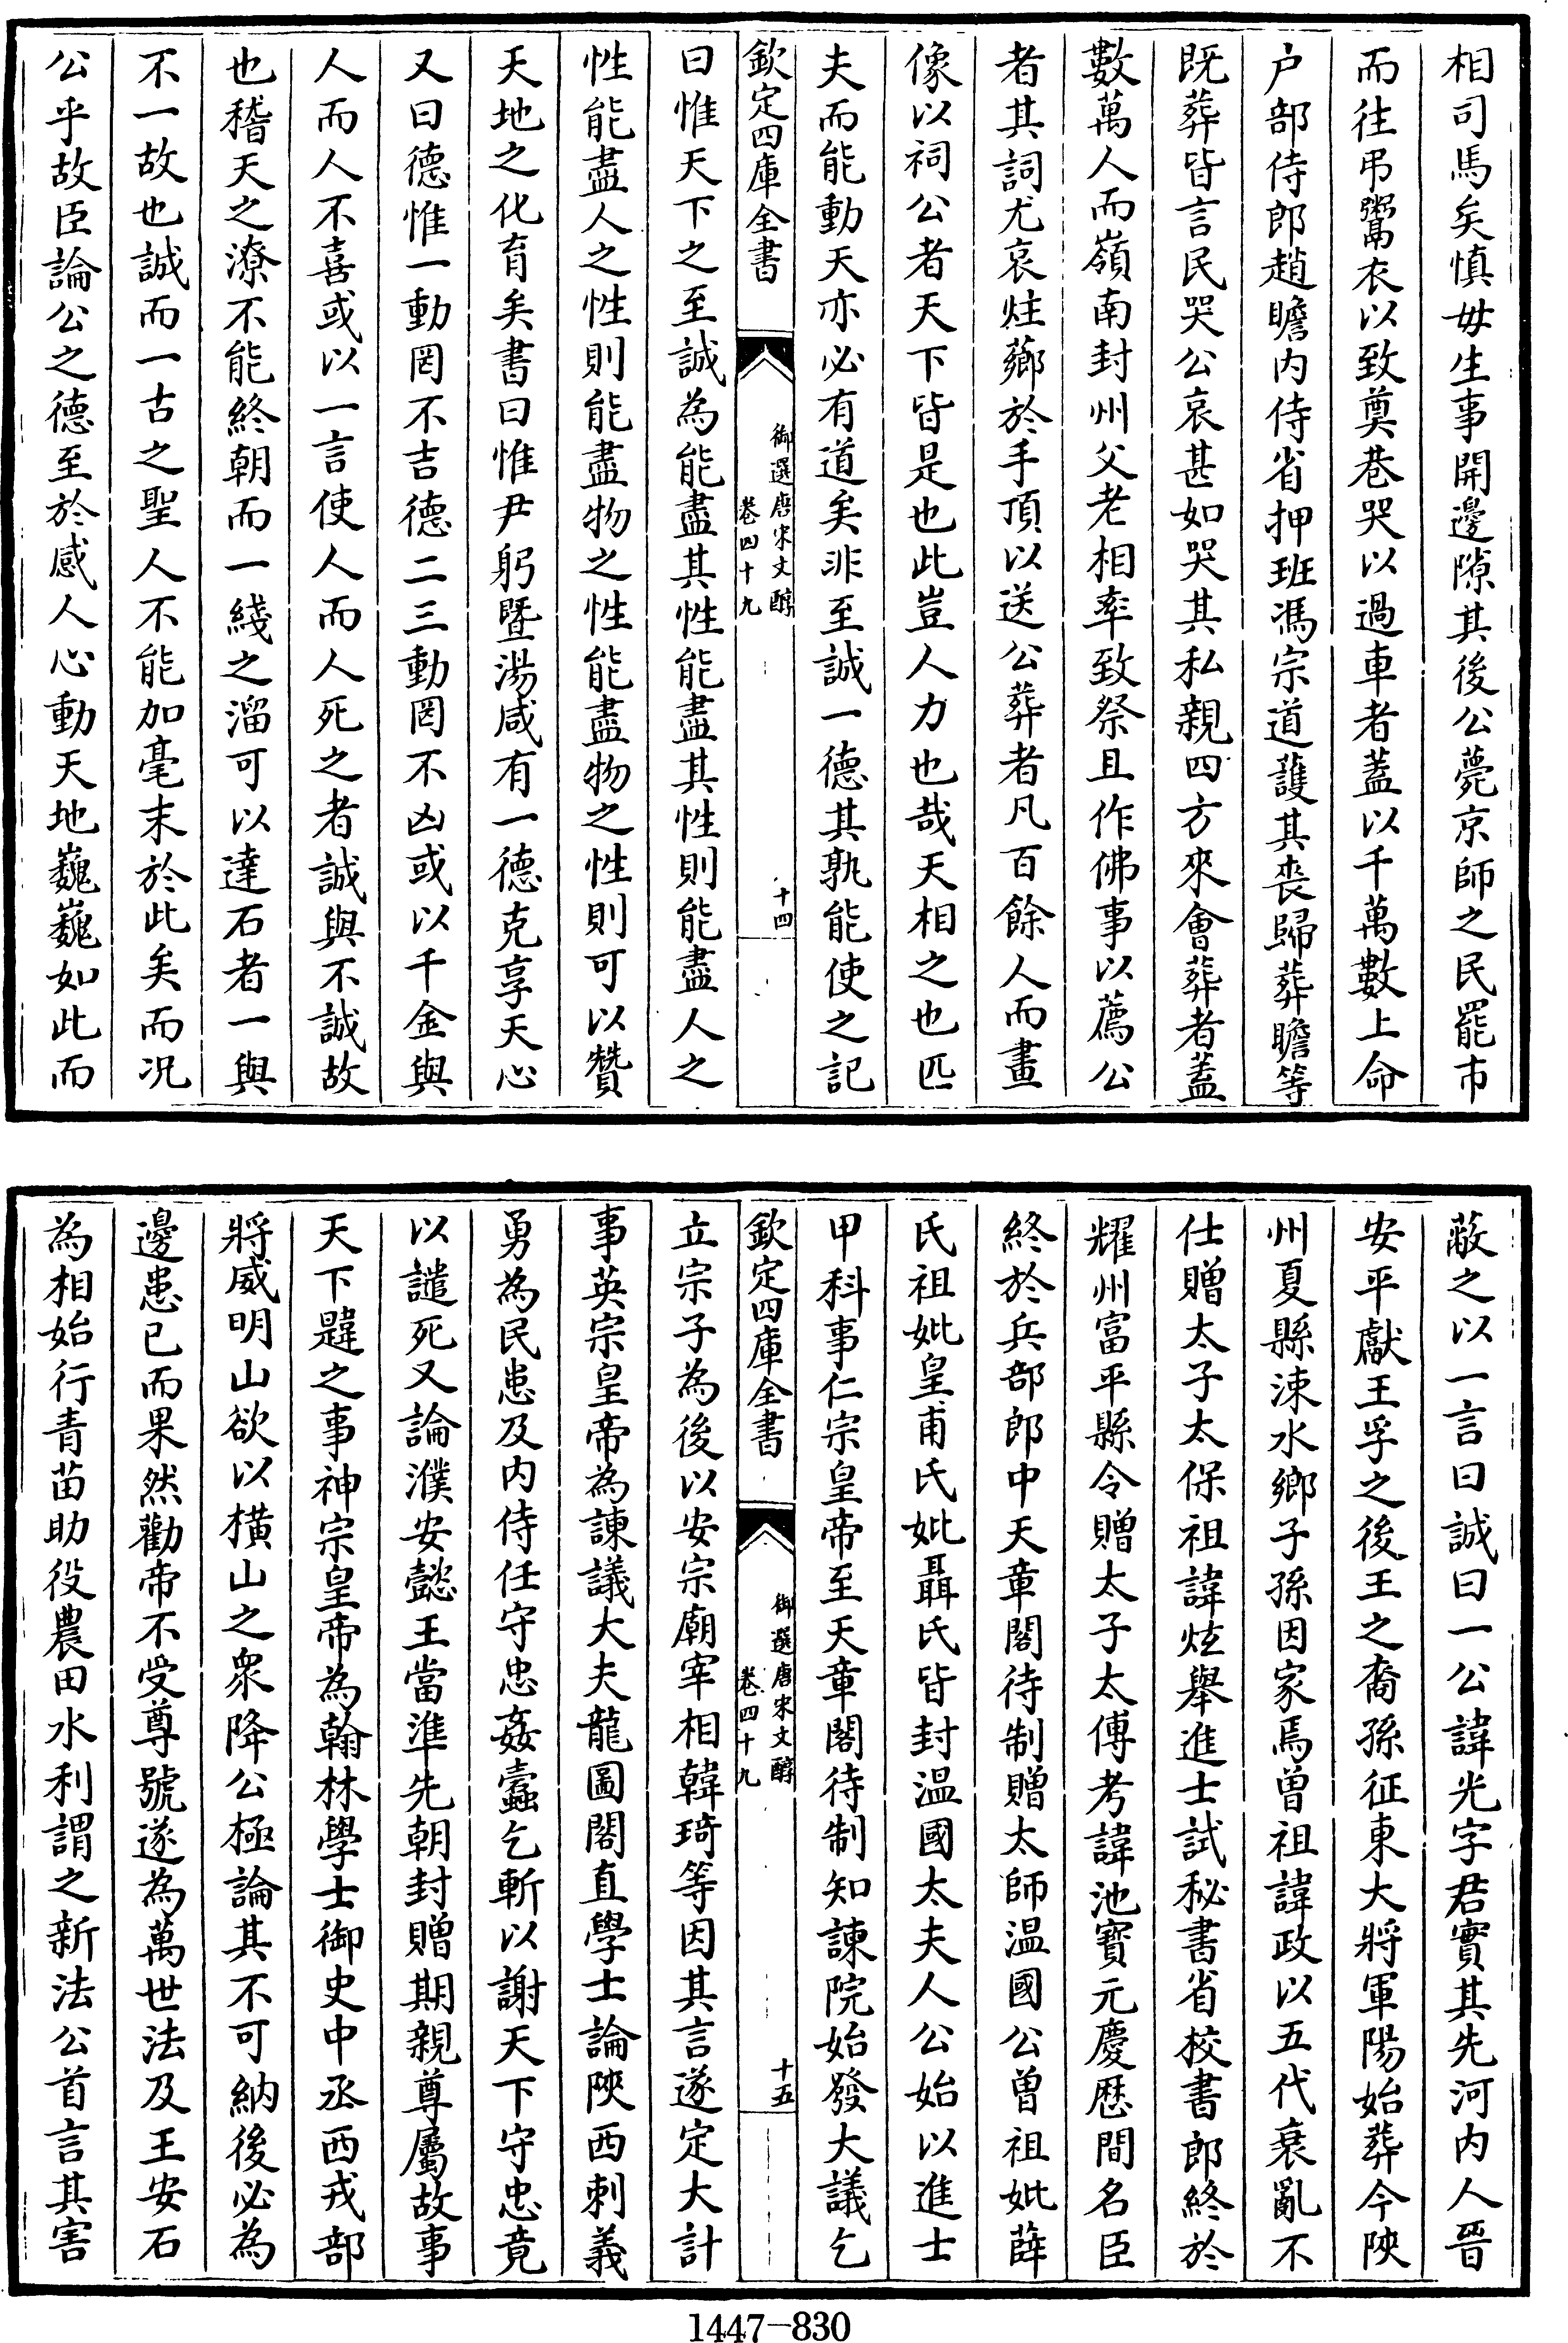 相司馬矣慎毋生事開邊隙其後公薨京師之民罷市
而往弔鬻衣以致奠巷哭以過車者蓋以千萬數上命
户部侍郎趙瞻内侍省押班馮宗道護其喪歸葬瞻等
既葬皆言民哭公哀甚如哭其私親四方來會葬者蓋
數萬人而嶺南封州父老相率致祭且作佛事以薦公
者其詞尤哀炷薌於手頂以送公葬者凡百餘人而畫
像以祠公者天下皆是也此豈人力也哉天相之也匹
夫而能動天亦必有道矣非至誠一德其孰能使之記
欽定四庫全書
御選唐宋文醇
卷四十九
十四
曰惟天下之至誠為能盡其性能盡其性則能盡人之
性能盡人之性則能盡物之性能盡物之性則可以贊
天地之化育矣書曰惟尹躬暨湯咸有一德克享天心
又曰德惟一動罔不吉德二三動罔不凶或以千金與
人而人不喜或以一言使人而人死之者誠與不誠故
也稽天之潦不能終朝而一綫之溜可以達石者一與
不一故也誠而一古之聖人不能加毫末於此矣而况
公乎故臣論公之德至於感人心動天地巍巍如此而
蔽之以一言曰誠曰一公諱光字君實其先河内人晉
安平獻王孚之後王之裔孫征東大將軍陽始葬今陜
州夏縣涑水鄉子孫因家焉曽祖諱政以五代衰亂不
仕贈太子太保祖諱炫舉進士試秘書省校書郎終於
耀州富平縣令贈太子太傅考諱池寳元慶歴間名臣
終於兵部郎中天章閣待制贈太師温國公曽祖妣薛
氏祖妣皇甫氏妣聶氏皆封温國太夫人公始以進士
甲科事仁宗皇帝至天章閣待制知諫院始發大議乞
欽定四庫全書
御選唐宋文醇
卷四十九
十五
立宗子為後以安宗廟宰相韓琦等因其言遂定大計
事英宗皇帝為諫議大夫龍圖閣直學士論陜西刺義
勇為民患及内侍任守忠姦蠹乞斬以謝天下守忠竟
以譴死又論濮安懿王當準先朝封贈期親尊屬故事
天下韙之事神宗皇帝為翰林學士御史中丞西戎部
將嵬明山欲以横山之衆降公極論其不可納後必為
邊患已而果然勸帝不受尊號遂為萬世法及王安石
為相始行青苗助役農田水利謂之新法公首言其害
1447-830